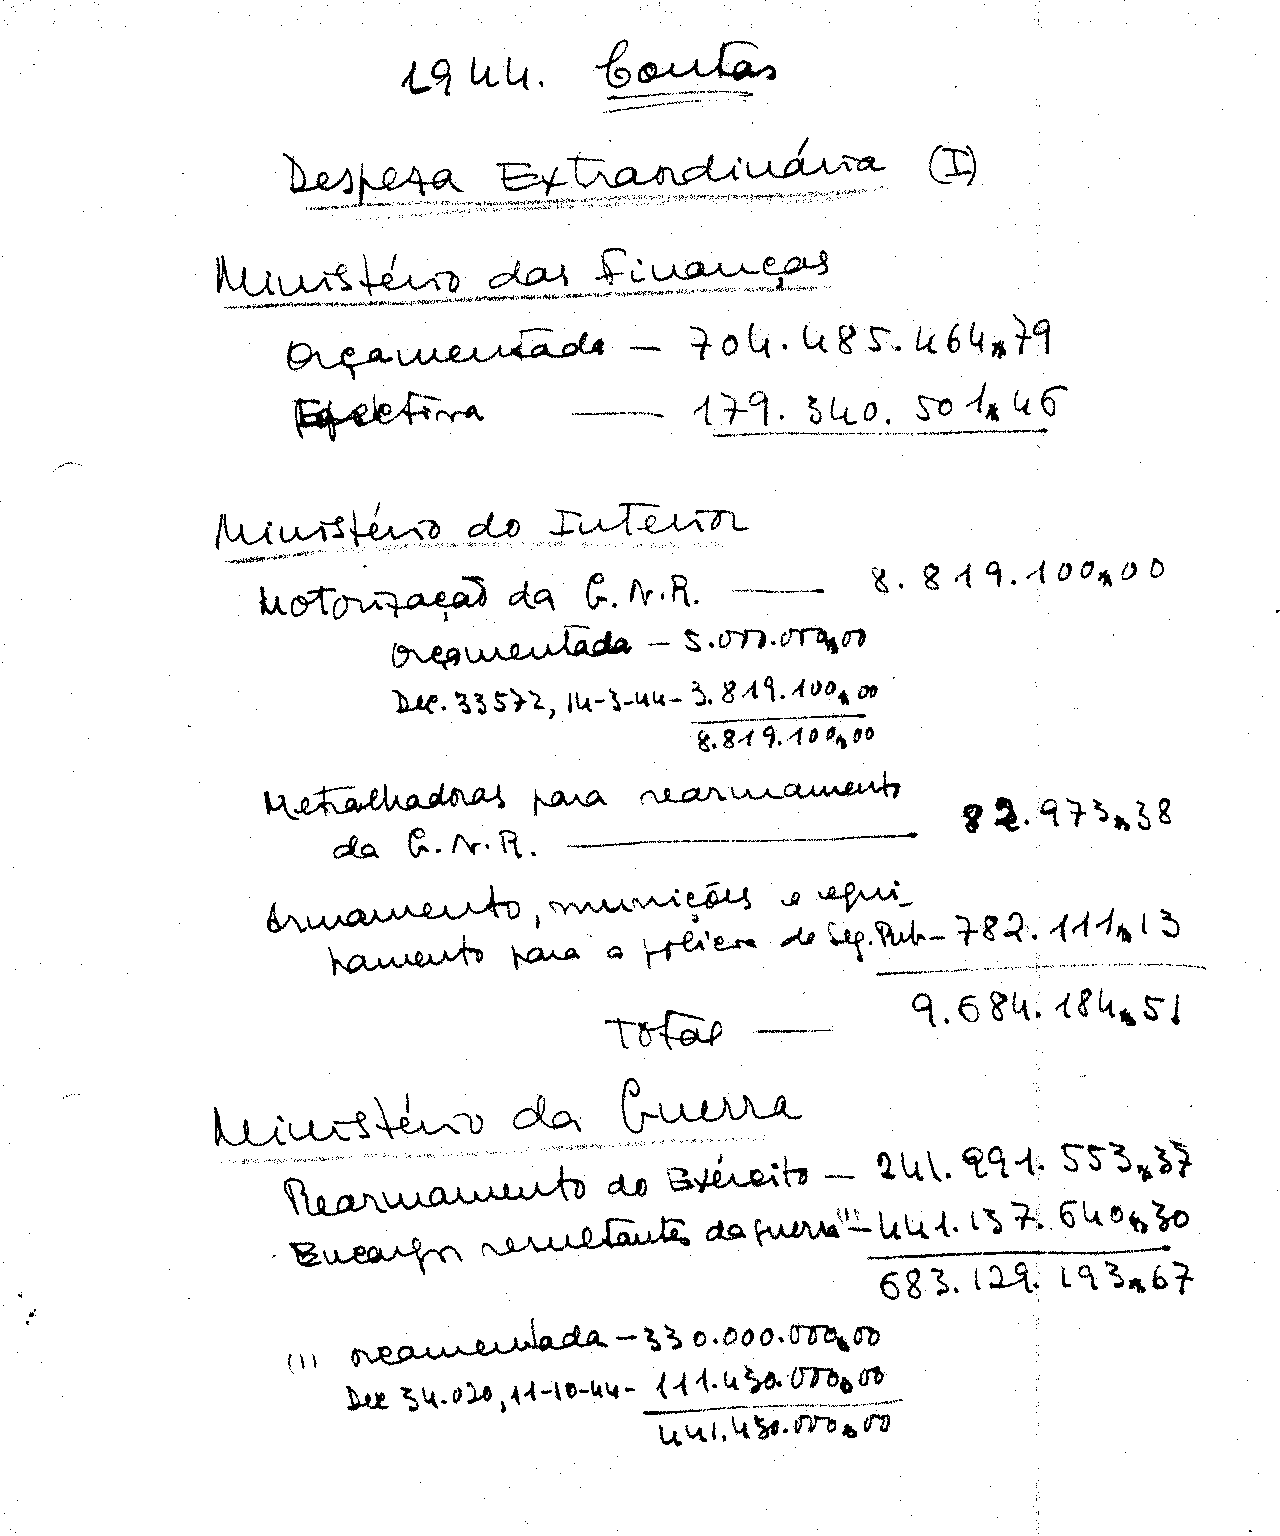 1944. Contas
Despeza Extraordinária (I)
Ministério das Finanças
Orçamentada — 704.485.464$79
Efectiva — 179.340.501$46
Ministério do Interior
Motorização da G.N.R. — 8.819.100$00
Orçamentada — 5.000.000$00
Dec. 33572, 14-3-44 - 3.819.100$00
8.819.100$00
Metralhadoras para rearmamento
da G.N.R. — 82.973$38
Armamento, munições e equi-
pamento para a polícia de Seg. Pub. — 782.111$13
Total — 9.684.184$51
Ministério da Guerra
Rearmamento do Exército — 241.991.553$37
Encargos resultantes da guerra (1) — 441.137.640$30
683.129.193$67
(1) orçamentada — 330.000.000$00
Dec 34.020, 11-10-44 - 111.430.000$00
441.430.000$00